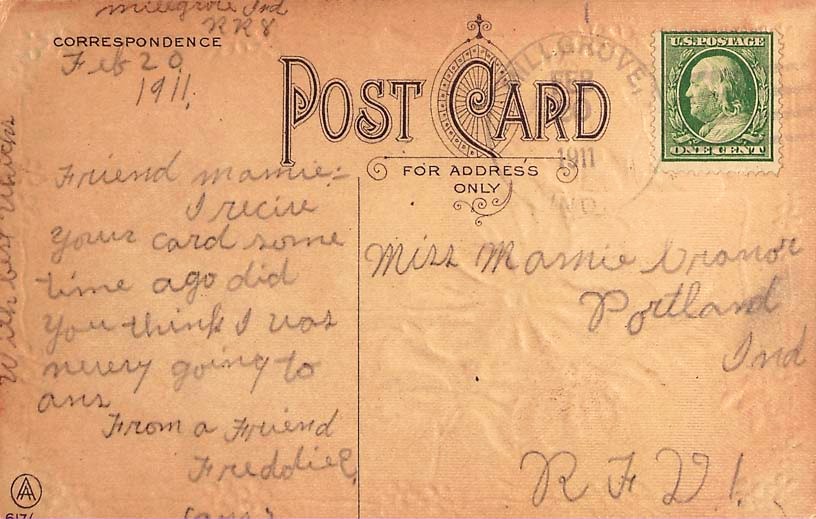 Millgrove Ind
RR8
CORRESPONDENCE
Feb 20
1911.
Friend Mamie:-
I recive
your card some
time ago did
you think I was
nevery going to
ans
From a Friend
Freddie
(ans)
With best
POST CARD
FOR ADDRESS
ONLY
MILLGROVE,
FEB
1911
IND.
U.S. POSTAGE
ONE CENT
Miss Mamie Cranor
Portland
Ind
R F D 1.
AA
6171